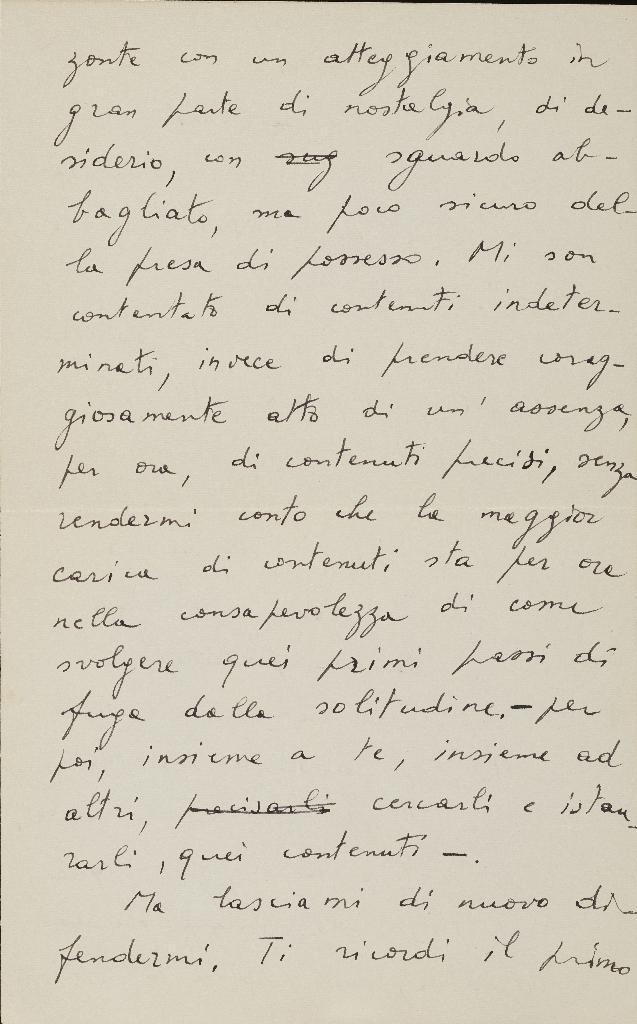 zonte con un atteggiamento in
gran parte di nostalgia, di de-
siderio, con sug sguardo ab-
bagliato, ma poco sicuro del-
la presa di possesso. Mi son
contentato di contenuti indeter-
minati, invece di prendere corag-
giosamente atto di un' assenza,
per ora, di contenuti precisi, senza
rendermi conto che la maggior
carica di contenuti sta per ora
nella consapevolezza di come
svolgere quei primi passi di
fuga dalla solitudine, - per
poi, insieme a te, insieme ad
altri, precisarli cercarli e istau-
rarli, quei contenuti -.
Ma lasciami di nuovo di-
fendermi. Ti ricordi il primo